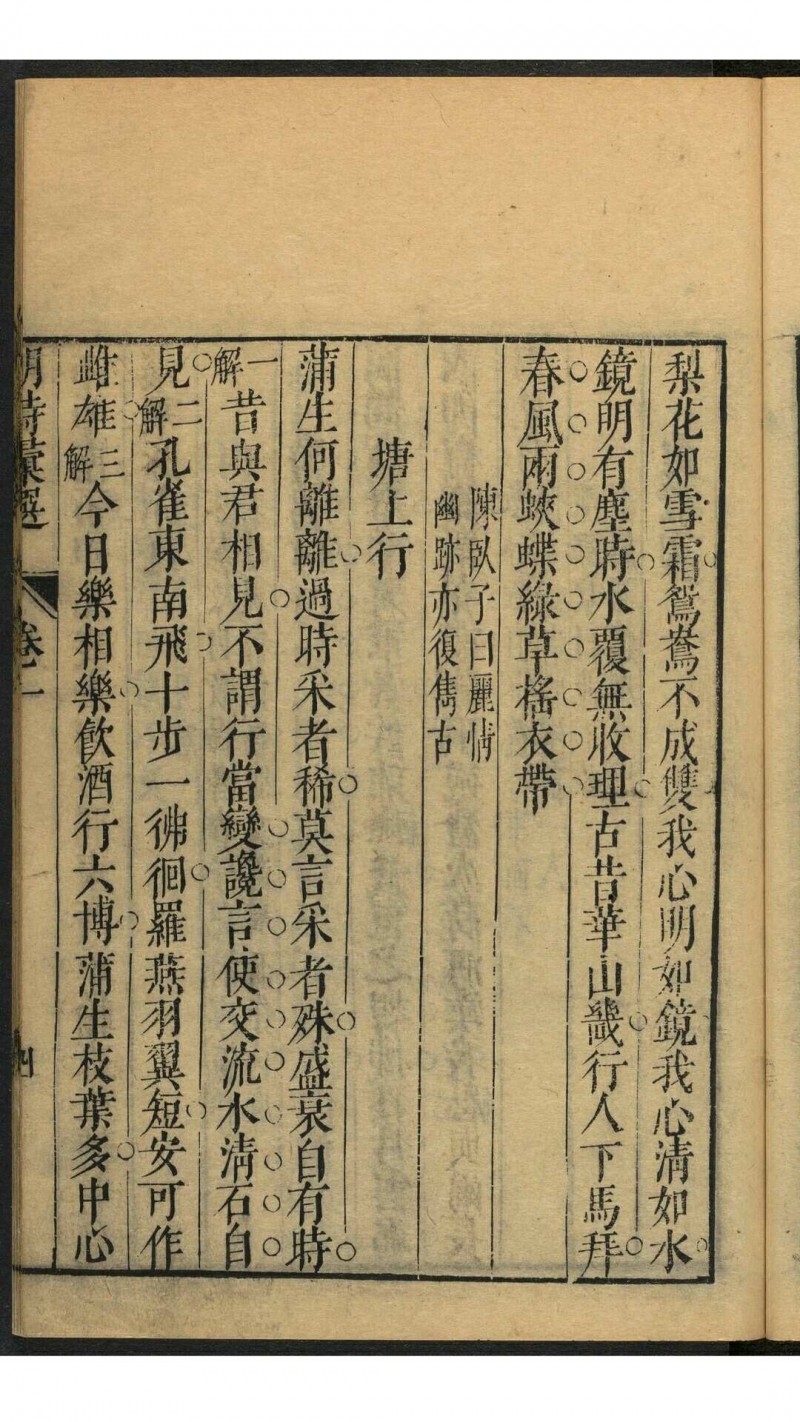 梨花如雪霜鴛鴦不成雙我心明如鏡我心清如水
鏡明有塵時水覆無收理古昔華山畿行人下馬拜
春風兩蛺蝶綠草榣衣帶
陳臥子曰麗情
幽跡亦復雋古
塘上行
蒲生何離離過時采者稀莫言采者殊盛衰自有時
一解昔與君相見不謂行當變讒言使交流水清石自
見二解孔雀東南飛十步一彿徊羅燕羽翼短安可作
雌雄三解今日樂相樂飲酒行六博蒲生枝葉多中心
明詩彙選 卷一 四